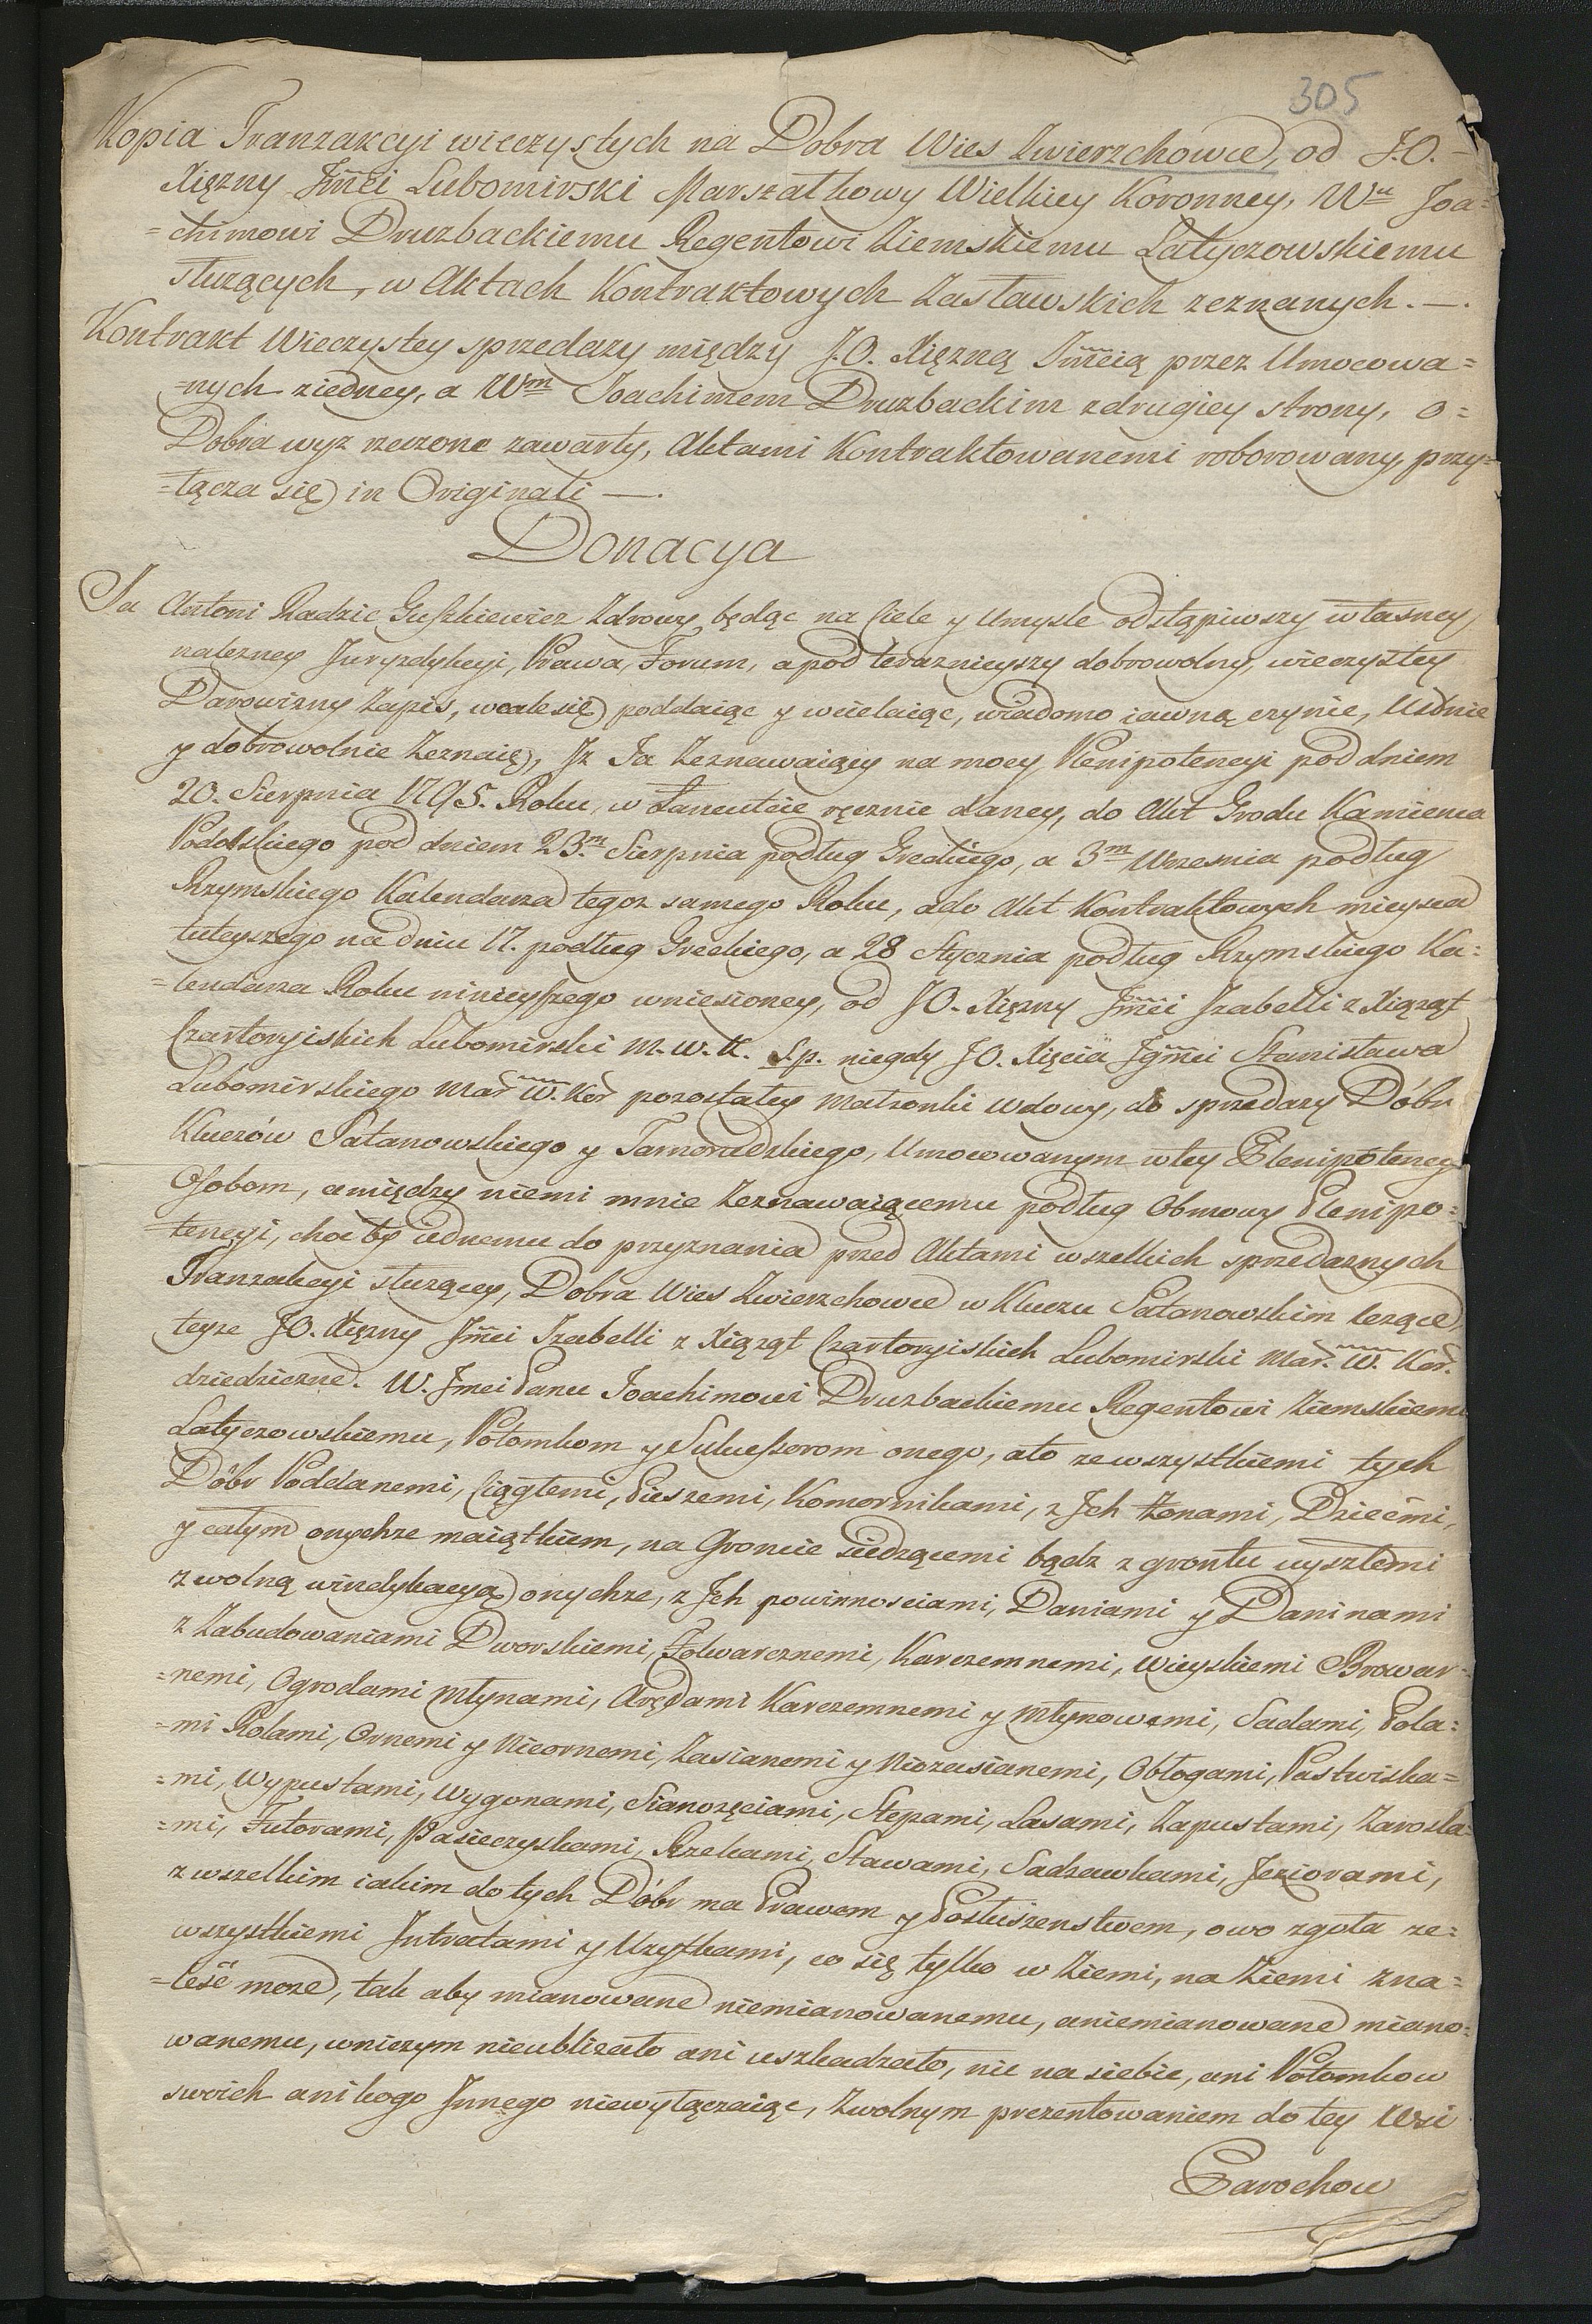 305
Kopia Tranzakcyi wieczystych na Dobra Wies Zwierzchowce, od J.O.
Xiężny Jmci Lubomirski Marszałkowy Wielkiey Koronney, Wu Joa=
=chimowi Druzbackiemu Regentowi Ziemskiemu Latyczowskiemu
służących, w Aktach Kontraktowych Zasławskich zeznanych. —.
Kontrakt Wieczystey sprzedazy między J.O. Xiężną Jmcią przez Umocowa=
=nych ziedney, a Wm Joachimem Druzbackim zdrugiey strony, o=
Dobra wyz rzeczone zawarty, Aktami Kontraktowanemi roborowany, przy=
=łącza się in Originali —.
Donacya
Ja Antoni Radzic Guszkiewicz Zdrowy będąc na Ciele y Umysle odstąpiwszy własney,
nalezney Juryzdykcyi, Prawa, Forum, a pod terazniejszy dobrowolny, wieczystey
Darowizny Zapis, wcale się poddaiąc y wcielaiąc, wiadomo iawną czynie, Ustnie
y dobrowolnie Zeznaię, Jz Ja Zeznawaiący na mocy Plenipotencyi pod dniem
20. Sierpnia 1795. Roku, w Łancucie ręcznie daney, do Akt Grodu Kamienca
Podolskiego pod dniem 23.m Sierpnia podług Greckiego, a 3m Wrzesnia podług
Rzymskiego Kalendarza tegoz samego Roku, a do Akt Kontraktowych mieysca
tuteyszego na dniu 17. podług Greckiego, a 28 Stycznia podług Rzymskiego Ka=
=lendarza Roku ninieyszego wniesioney, od JO. Xiężny Jmci Jzabelli z Xiążąt
Czartoryiskich Lubomirski M. W. K. S.p. niegdy JO. Xięcia Jgmci Stanisława
Lubomirskiego Mar W. Kor pozostałey Małzonki Wdowy, do sprzedazy Dóbr
Kluczów Satanowskiego y Tarnorudzkiego, Umocowanym w tey Plenipotency
Osobom, a między niemi mnie Zeznawaiącemu podług Obmowy Plenipo=
=tencyi, choćby iednemu do przyznania przed Aktami wszelkich sprzedaznych
Tranzakcyi służącey, Dobra Wies Zwierzchowce w Kluczu Satanowskim lezące,
teyze JO. Xiężny Jmci Jzabelli z Xiążąt Czartoryiskich Lubomirski Mar. W. Kor.
dziedziczne. W. Jmci Panu Joachimowi Druzbackiemu Regentowi Ziemskiemu
Latyczowskiemu, Potomkom y Sukcessorom onego, a to ze wszystkiemi tych
Dóbr Poddanemi, Ciągłemi, Pieszemi, Komornikami, z Jch Zonami, Dziećmi,
y całym onychze maiątkiem, na Groncie siedzącemi bądz z grontu wyszłemi
z wolną windykacyą onychze, z Jch powinnosciami, Daniami y Daninami
z Zabudowaniami Dworskiemi, Folwarcznemi, Karczemnemi, Wieyskiemi Browar=
=nemi, Ogrodami Młynami, Arędami Karczemnemi y Młynowemi, Sadami, Pola=
=mi Rolami, Ornemi y Nieornemi, Zasianemi y Niezasianemi, Obłogami, Pastwiska=
=mi, Wypustami, Wygonami, Sianozęciami, Stepami, Lasami, Zapustami, Zarosla=
=mi, Futorami, Pasieczyskami, Rzekami, Stawami, Sadzawkami, Jeziorami,
z wszelkim iakim do tych Dóbr ma Prawem y Posłuszenstwem, owo zgoła ze=
wszystkiemi Jntratami y Uzytkami, co się tylko w Ziemi, na Ziemi zna=
=leść moze, tak aby mianowane niemianowanemu, a niemianowane miano=
wanemu, w niczym nieubliżało ani uszkadzało, nic na siebie, ani Potomkow
swoich ani kogo Jnnego niewyłączaiąc, Zwolnym prezentowaniem do tey Wsi
Parochow